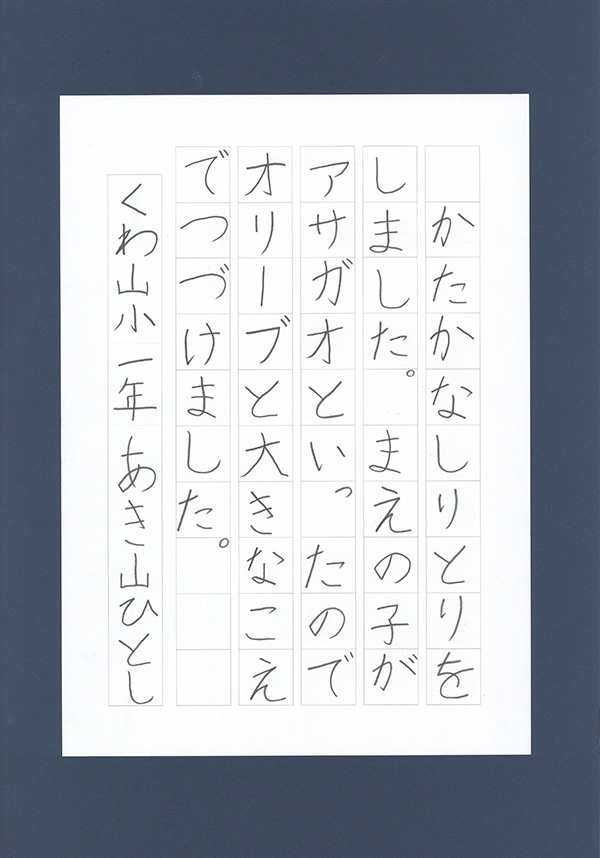 かたかなしりとりを
しました。まえの子が
アサガオといったので
オリーブと大きなこえ
でつづけました。
くわ山小一年あき山ひとし